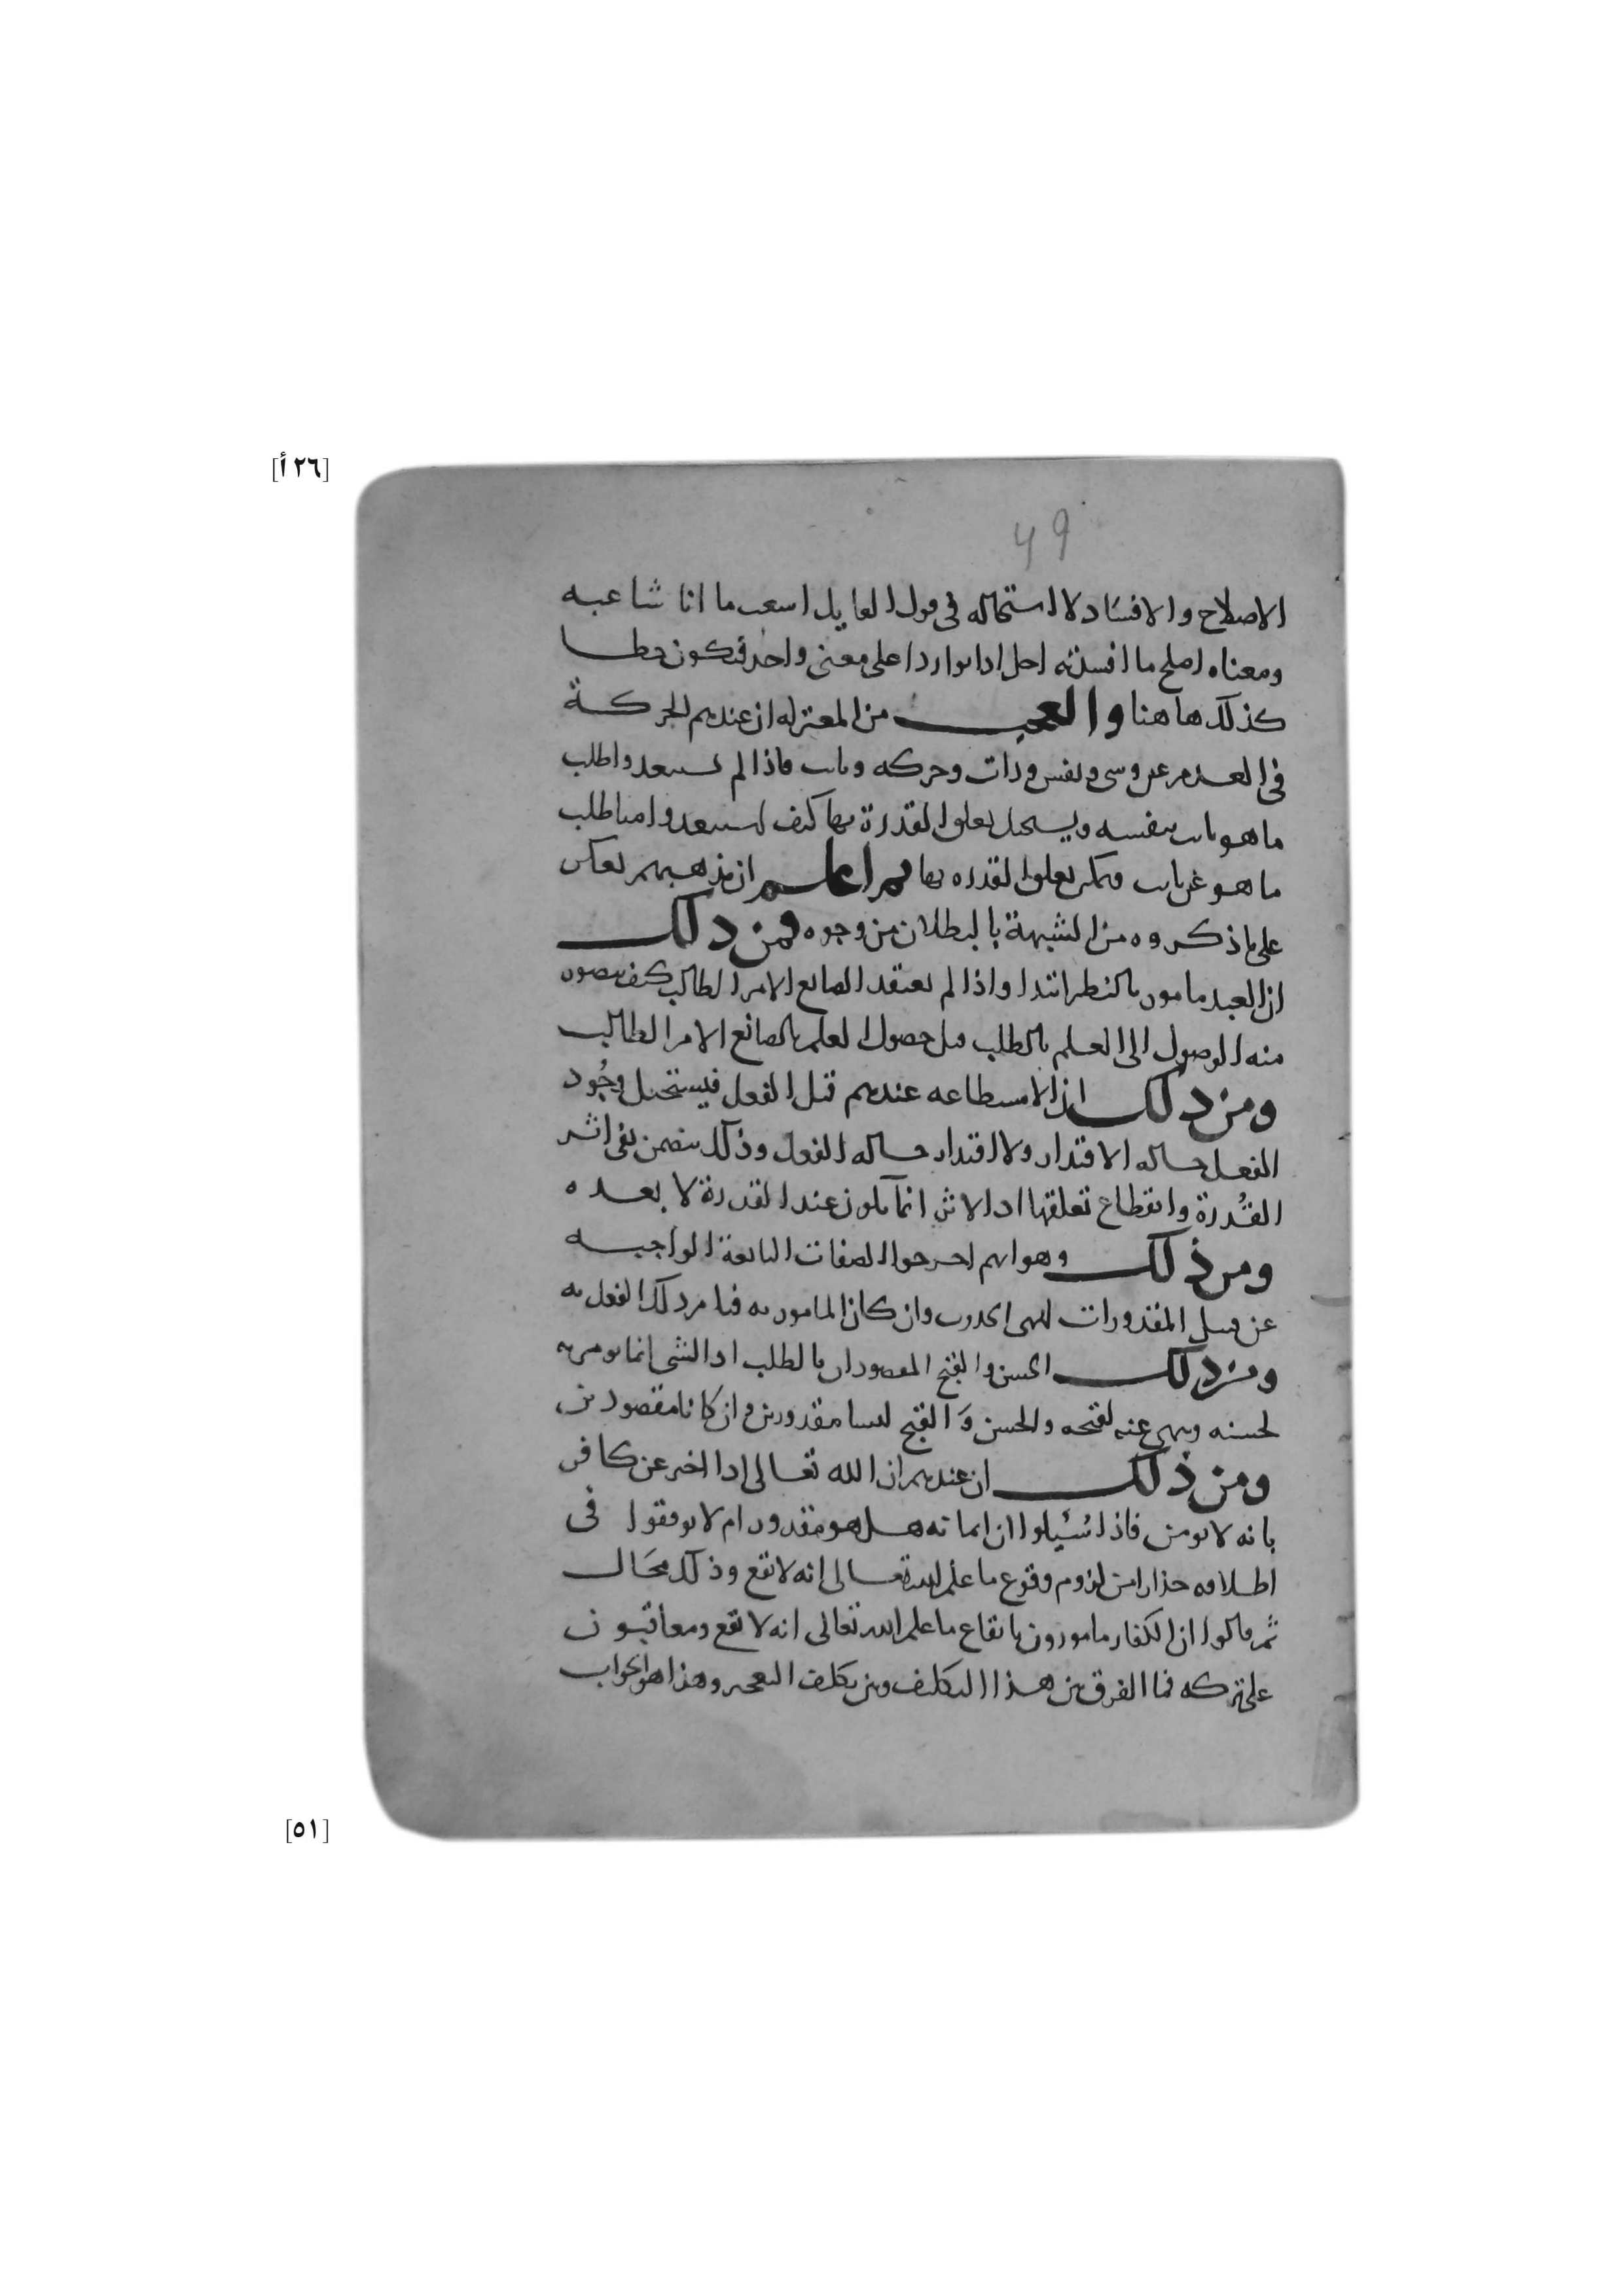 [٢٦ أ]
49
الاصلاح والافساد لا استحاله في قول القايل اشعب ما انا شاعبه
ومعناه اصلح ما افسدته احل اذا تواردا على معنى واحد فيكون خطا
كذلك هاهنا والعجب من المعتزله ان عندهم الحركة
في العدم عين وشي ونفس وذات وحركه وثابت فاذا لم يستبعدوا طلب
ما هو ثابت بنفسه ويستحيل تعلق القدرة بها كيف استبعدوا منا طلب
ما هو غير ثابت ويمكن تعلق القدره بها ثم اعلم ان مذهبهم يعكس
على ما ذكروه من الشبهة بالبطلان من وجوه فمن ذلك
ان العبد مامور بالنظر ابتدا واذا لم يعتقد الصانع الامر الطالب كيف يتصور
منه الوصول الى العلم بالطلب قبل حصول العلم بالصانع الامر الطالب
ومن ذلك ان الاستطاعه عندهم قبل الفعل فيستحيل وجُود
الفعل حاله الاقتدار ولا اقتدار حاله الفعل وذلك يتضمن نفي اثر
القُدرة وانقطاع تعلقها اذ الاثر انما يكون عند القدرة لا بعده
ومن ذلك وهو انهم اخرجوا الصفات التابعة الواجبه
عن قبيل المقدورات للحدوث وان كان المامور به
ومن ذلك الحسن والقبح المقصودان بالطلب اذ الشي انما يومر به
لحسنه وينهى عنه لقبحه والحسن وَالقبح ليسا مقدورين وان كانا مقصودين
ومن ذلك ان عندهم ان الله تعالى اذا اخبر عن كافر
بانه لا يومن فاذا سُئيلوا ان ايمانه هل هو مقدور ام لا توقفوا في
اطلاقه حذارا من لزوم وقوع ما علم الله تعالى انه لا يقع وذلك محَال
ثم قالوا ان الكفار مامورون بايقاع ما علم الله تعالى انه لا يقع ومعاقبون
على تركه فما الفرق بين هذا التكليف وبين تكليف العجز وهذا هو الجواب
[٥١]